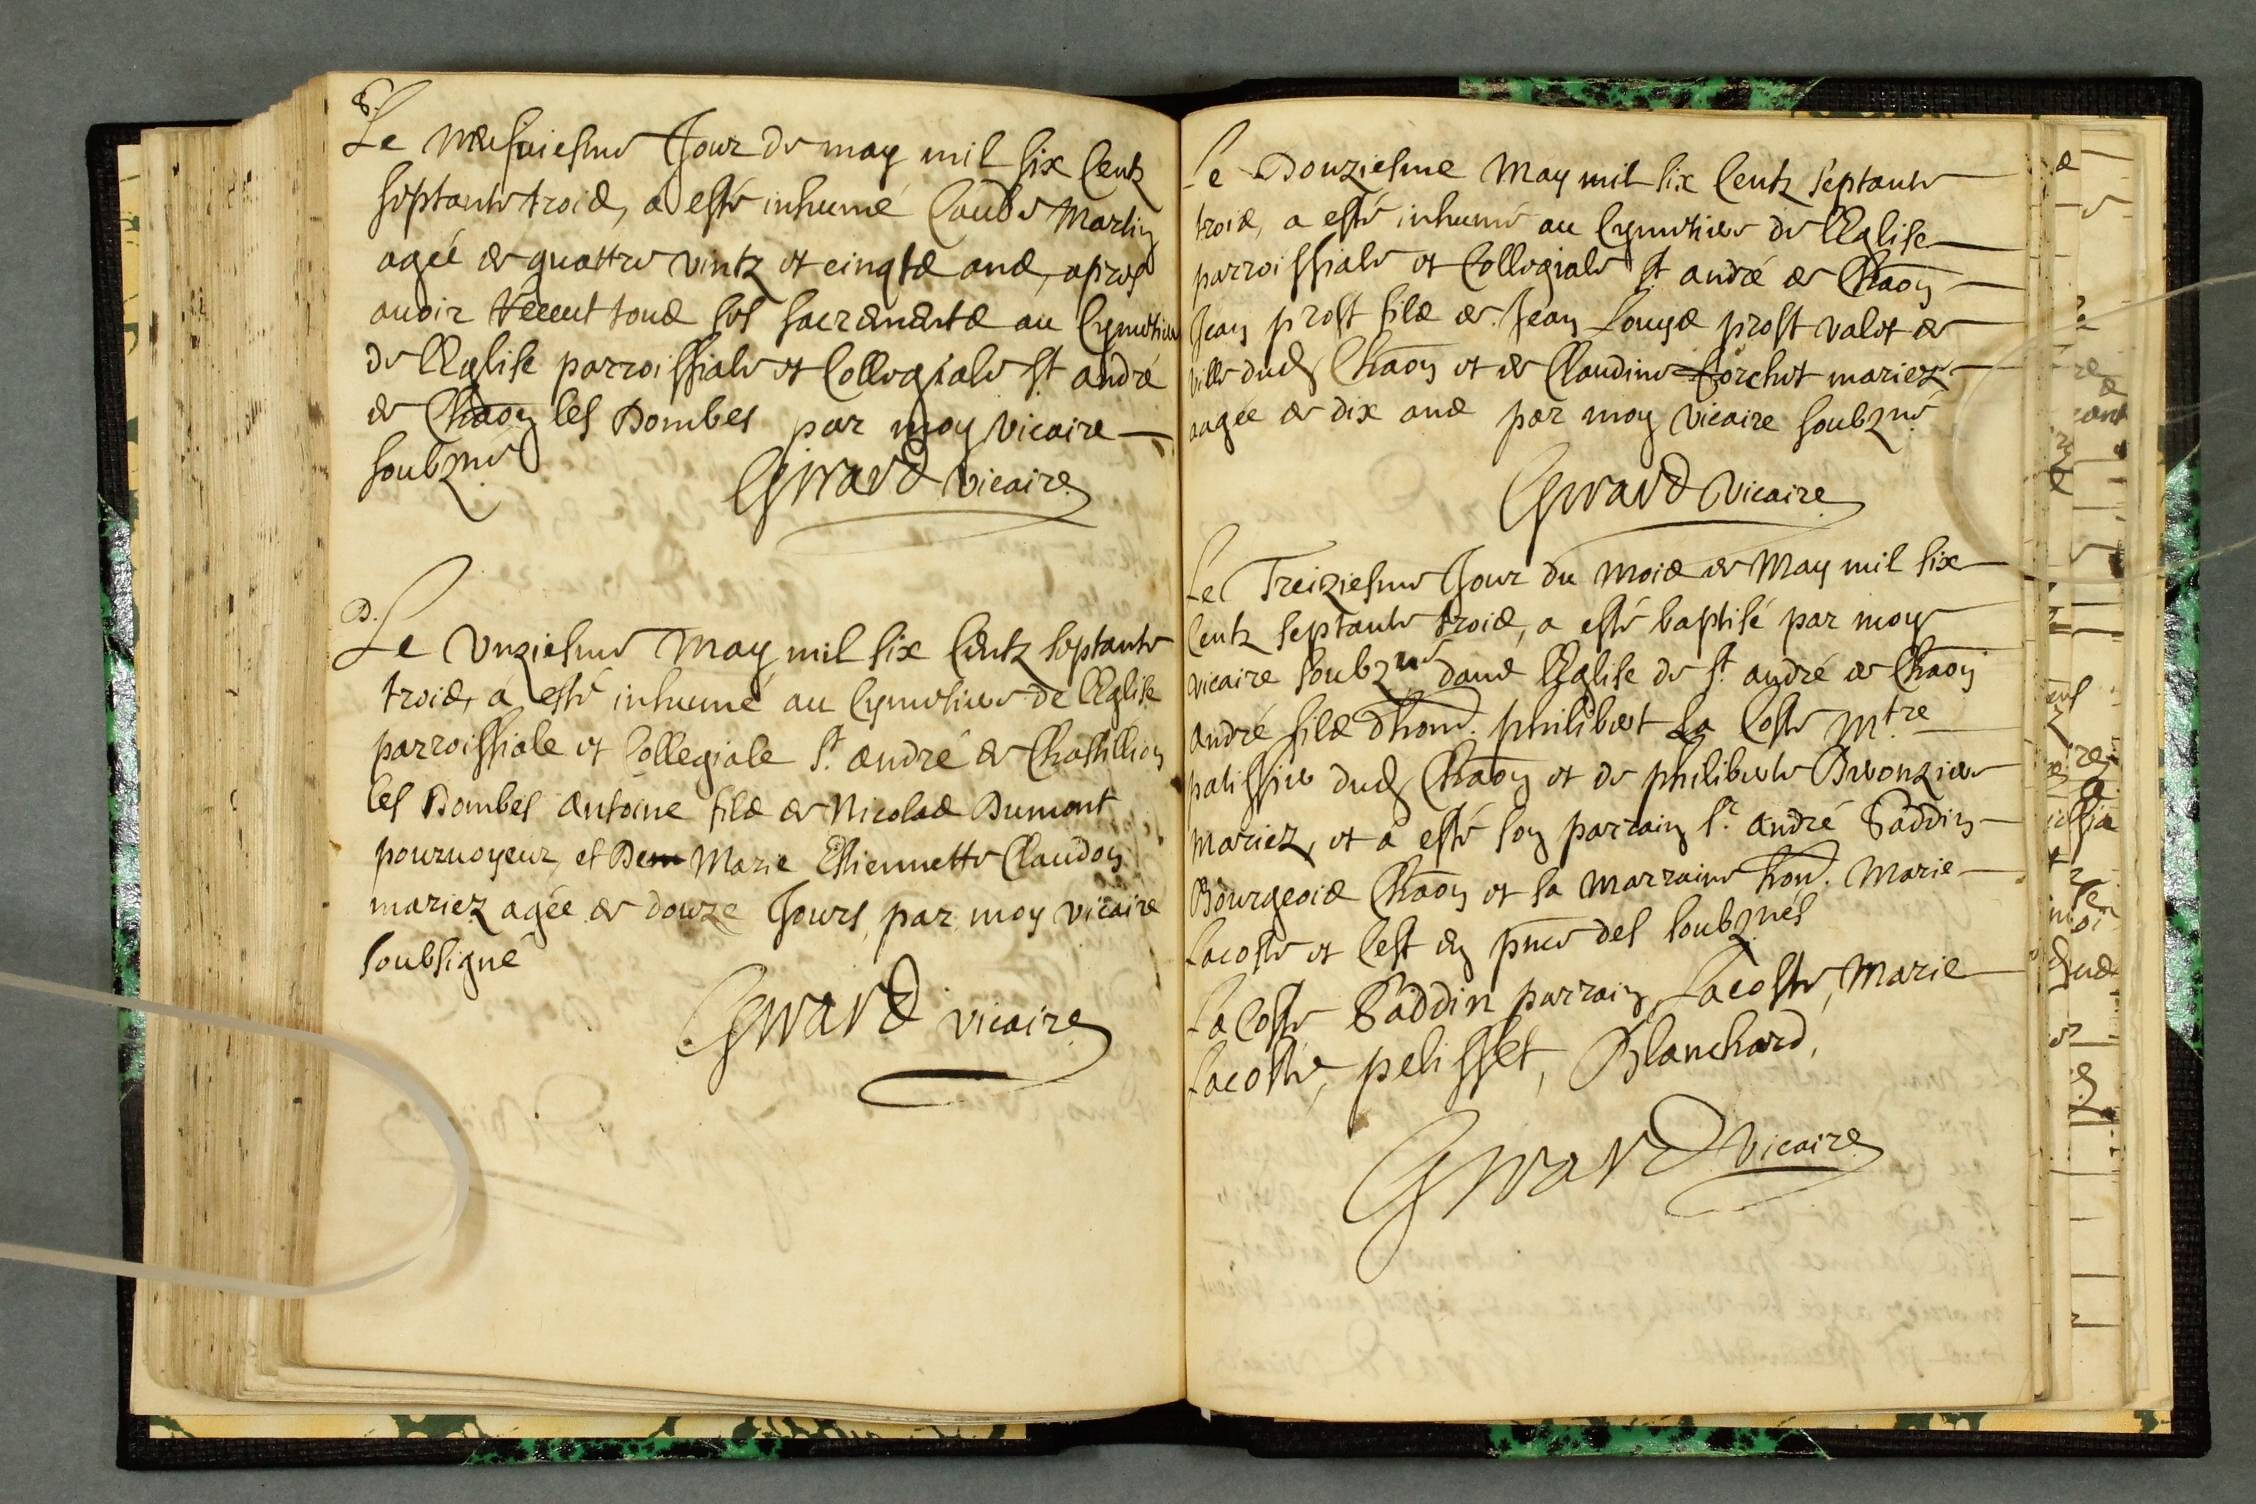 8.
Le mesmesme Jour de may mil six Centz
septante trois, a esté inhumé Claude Martin
agée de quattre vintz et cinqts ans, apres
avoir receut tous ses sacrements au Cymetiere
de l'Eglise parroissiale et Collegiale st andré
de Chãon les Dombes par moy vicaire
soubzné
Girard vicaire
D.
Le Unziesme May mil six Centz septante
trois, a esté inhumé au Cymetiere de l'Eglise
parroissiale et Collegiale st. andré de Chastillion
les Dombes antoine fils de Nicolas Dumont
pourvoyeur, et Dem Marie Estiennette Claudon
mariez agée de douze Jours, par moy vicaire
soubsigné
Girard vicaire
Le Douziesme May mil six Centz septante
trois, a esté inhumé au Cymetiere de l'Eglise
parroissiale et Collegiale st andré de Chãon
Jean prost fils de Jean Louys prost valet de
ville dud Chãon et de Claudine Corchet mariez
aagée de dix ans par moy vicaire soubzné
Girard vicaire
Le Treiziesme Jour du mois de May mil six
Centz septante trois, a esté baptisé par moy
vicaire soubzné dans l'Eglise de st andré de Chãon
andré fils d'hon. philibert La Coste mtre
patissier dud Chãon et de philiberte Bronziere
mariez, et a esté son parrain sr. andré Baddin
Bourgeois Chãon et sa marraine hon. Marie
Lacoste et c'est en pnce des soubznés
La Coste Baddin parrain, Lacoste, Marie
Lacoste, pelisset, Blanchard,
Girard vicaire